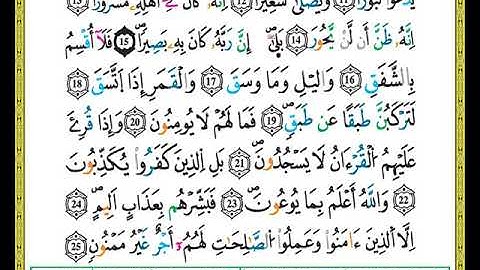 يَدْعُوا ثُبُورًا ۝١١ وَيَصْلَىٰ سَعِيرًا ۝١٢ إِنَّهُۥ كَانَ فِىٓ أَهْلِهِۦ مَسْرُورًا ۝١٣
إِنَّهُۥ ظَنَّ أَن لَّن يَحُورَ ۝١٤ بَلَىٰٓ إِنَّ رَبَّهُۥ كَانَ بِهِۦ بَصِيرًا ۝١٥ فَلَآ أُقْسِمُ
بِالشَّفَقِ ۝١٦ وَالَّيْلِ وَمَا وَسَقَ ۝١٧ وَالْقَمَرِ إِذَا اتَّسَقَ ۝١٨
لَتَرْكَبُنَّ طَبَقًا عَن طَبَقٍ ۝١٩ فَمَا لَهُمْ لَا يُومِنُونَ ۝٢٠ وَإِذَا قُرِئَ
عَلَيْهِمُ الْقُرْءَانُ لَا يَسْجُدُونَ ۝٢١ بَلِ الَّذِينَ كَفَرُوا يُكَذِّبُونَ
۝٢٢ وَاللَّهُ أَعْلَمُ بِمَا يُوعُونَ ۝٢٣ فَبَشِّرْهُم بِعَذَابٍ اَلِيمٍ ۝٢٤
اِلَّا الَّذِينَ ءَامَنُوا وَعَمِلُوا الصَّٰلِحَٰتِ لَهُمُۥٓ أَجْرٌ غَيْرُ مَمْنُونٍ ۝٢٥